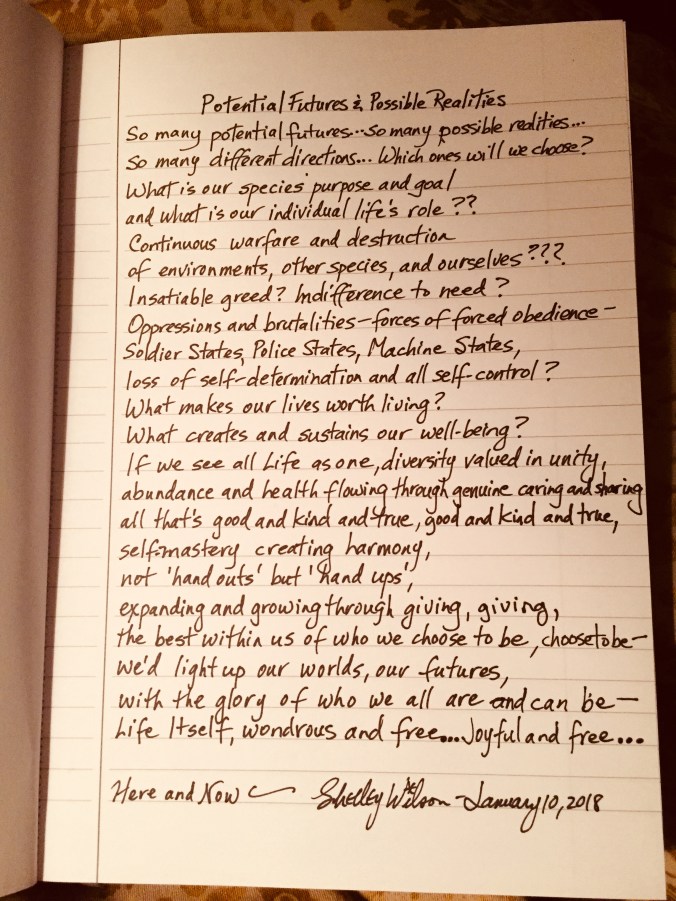 Potential Futures & Possible Realities
So many potential futures...so many possible realities...
So many different directions... Which ones will we choose?
What is our species' purpose and goal
and what is our individual life's role ??
Continuous warfare and destruction
of environments, other species, and ourselves???
Insatiable greed? Indifference to need?
Oppressions and brutalities—forces of forced obedience—
Soldier States, Police States, Machine States,
loss of self-determination and all self-control?
What makes our lives worth living?
What creates and sustains our well-being?
If we see all Life as one, diversity valued in unity,
abundance and health flowing through genuine caring and sharing
all that's good and kind and true, good and kind and true,
self-mastery creating harmony,
not 'hand outs' but 'hand ups',
expanding and growing through giving, giving,
the best within us of who we choose to be, choose to be—
we'd light up our worlds, our futures,
with the glory of who we all are and can be—
Life Itself, wondrous and free...Joyful and free...
Here and Now Shelley Wilson - January 10, 2018